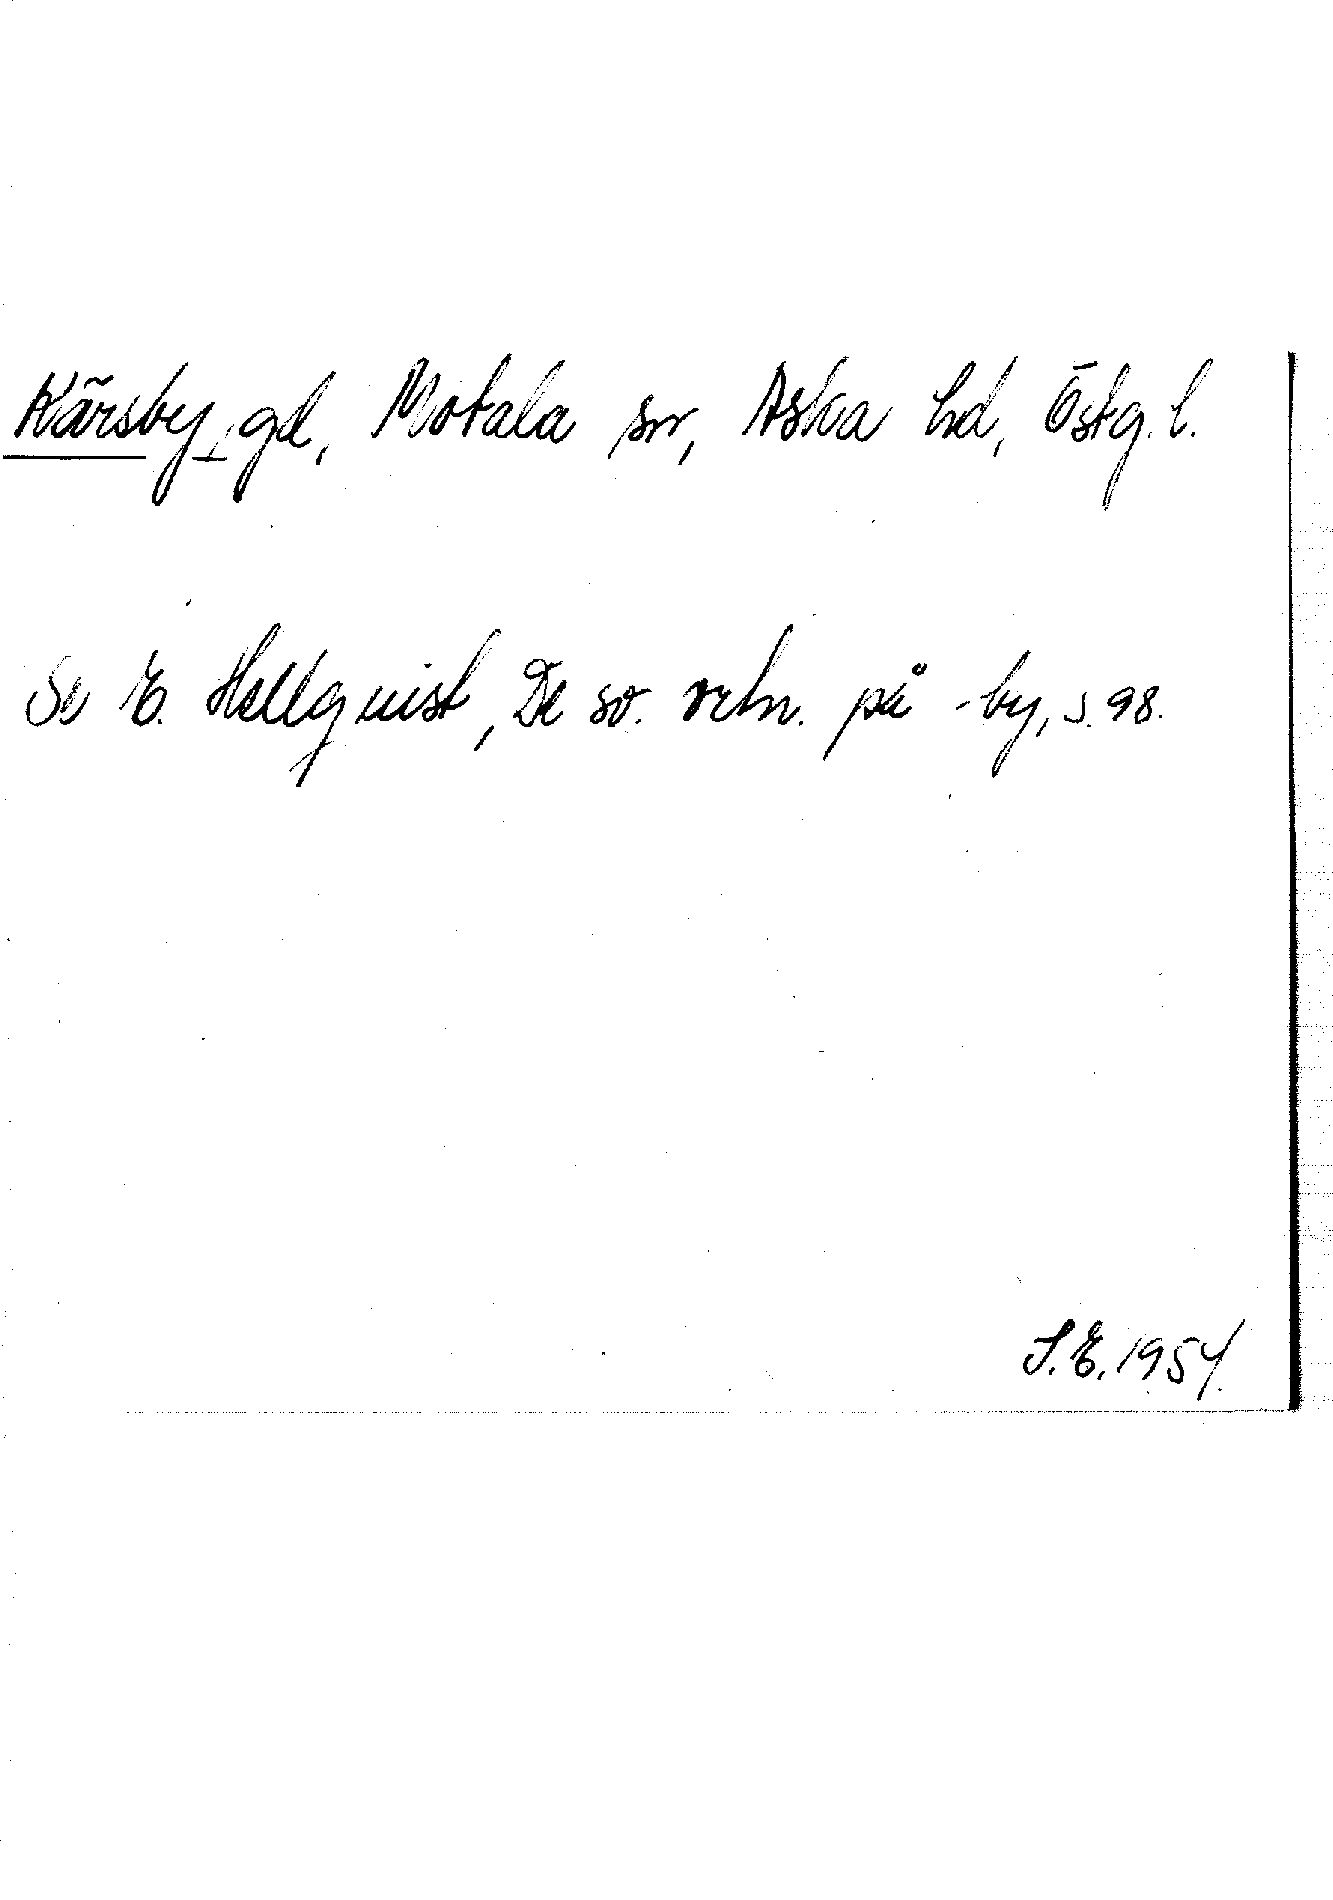 Kärsby, gd, Motala sn, Aska hd, Östg. l.
Se E. Hellquist, De sv. ortn. på -by, s. 98.
S.E. 1954.